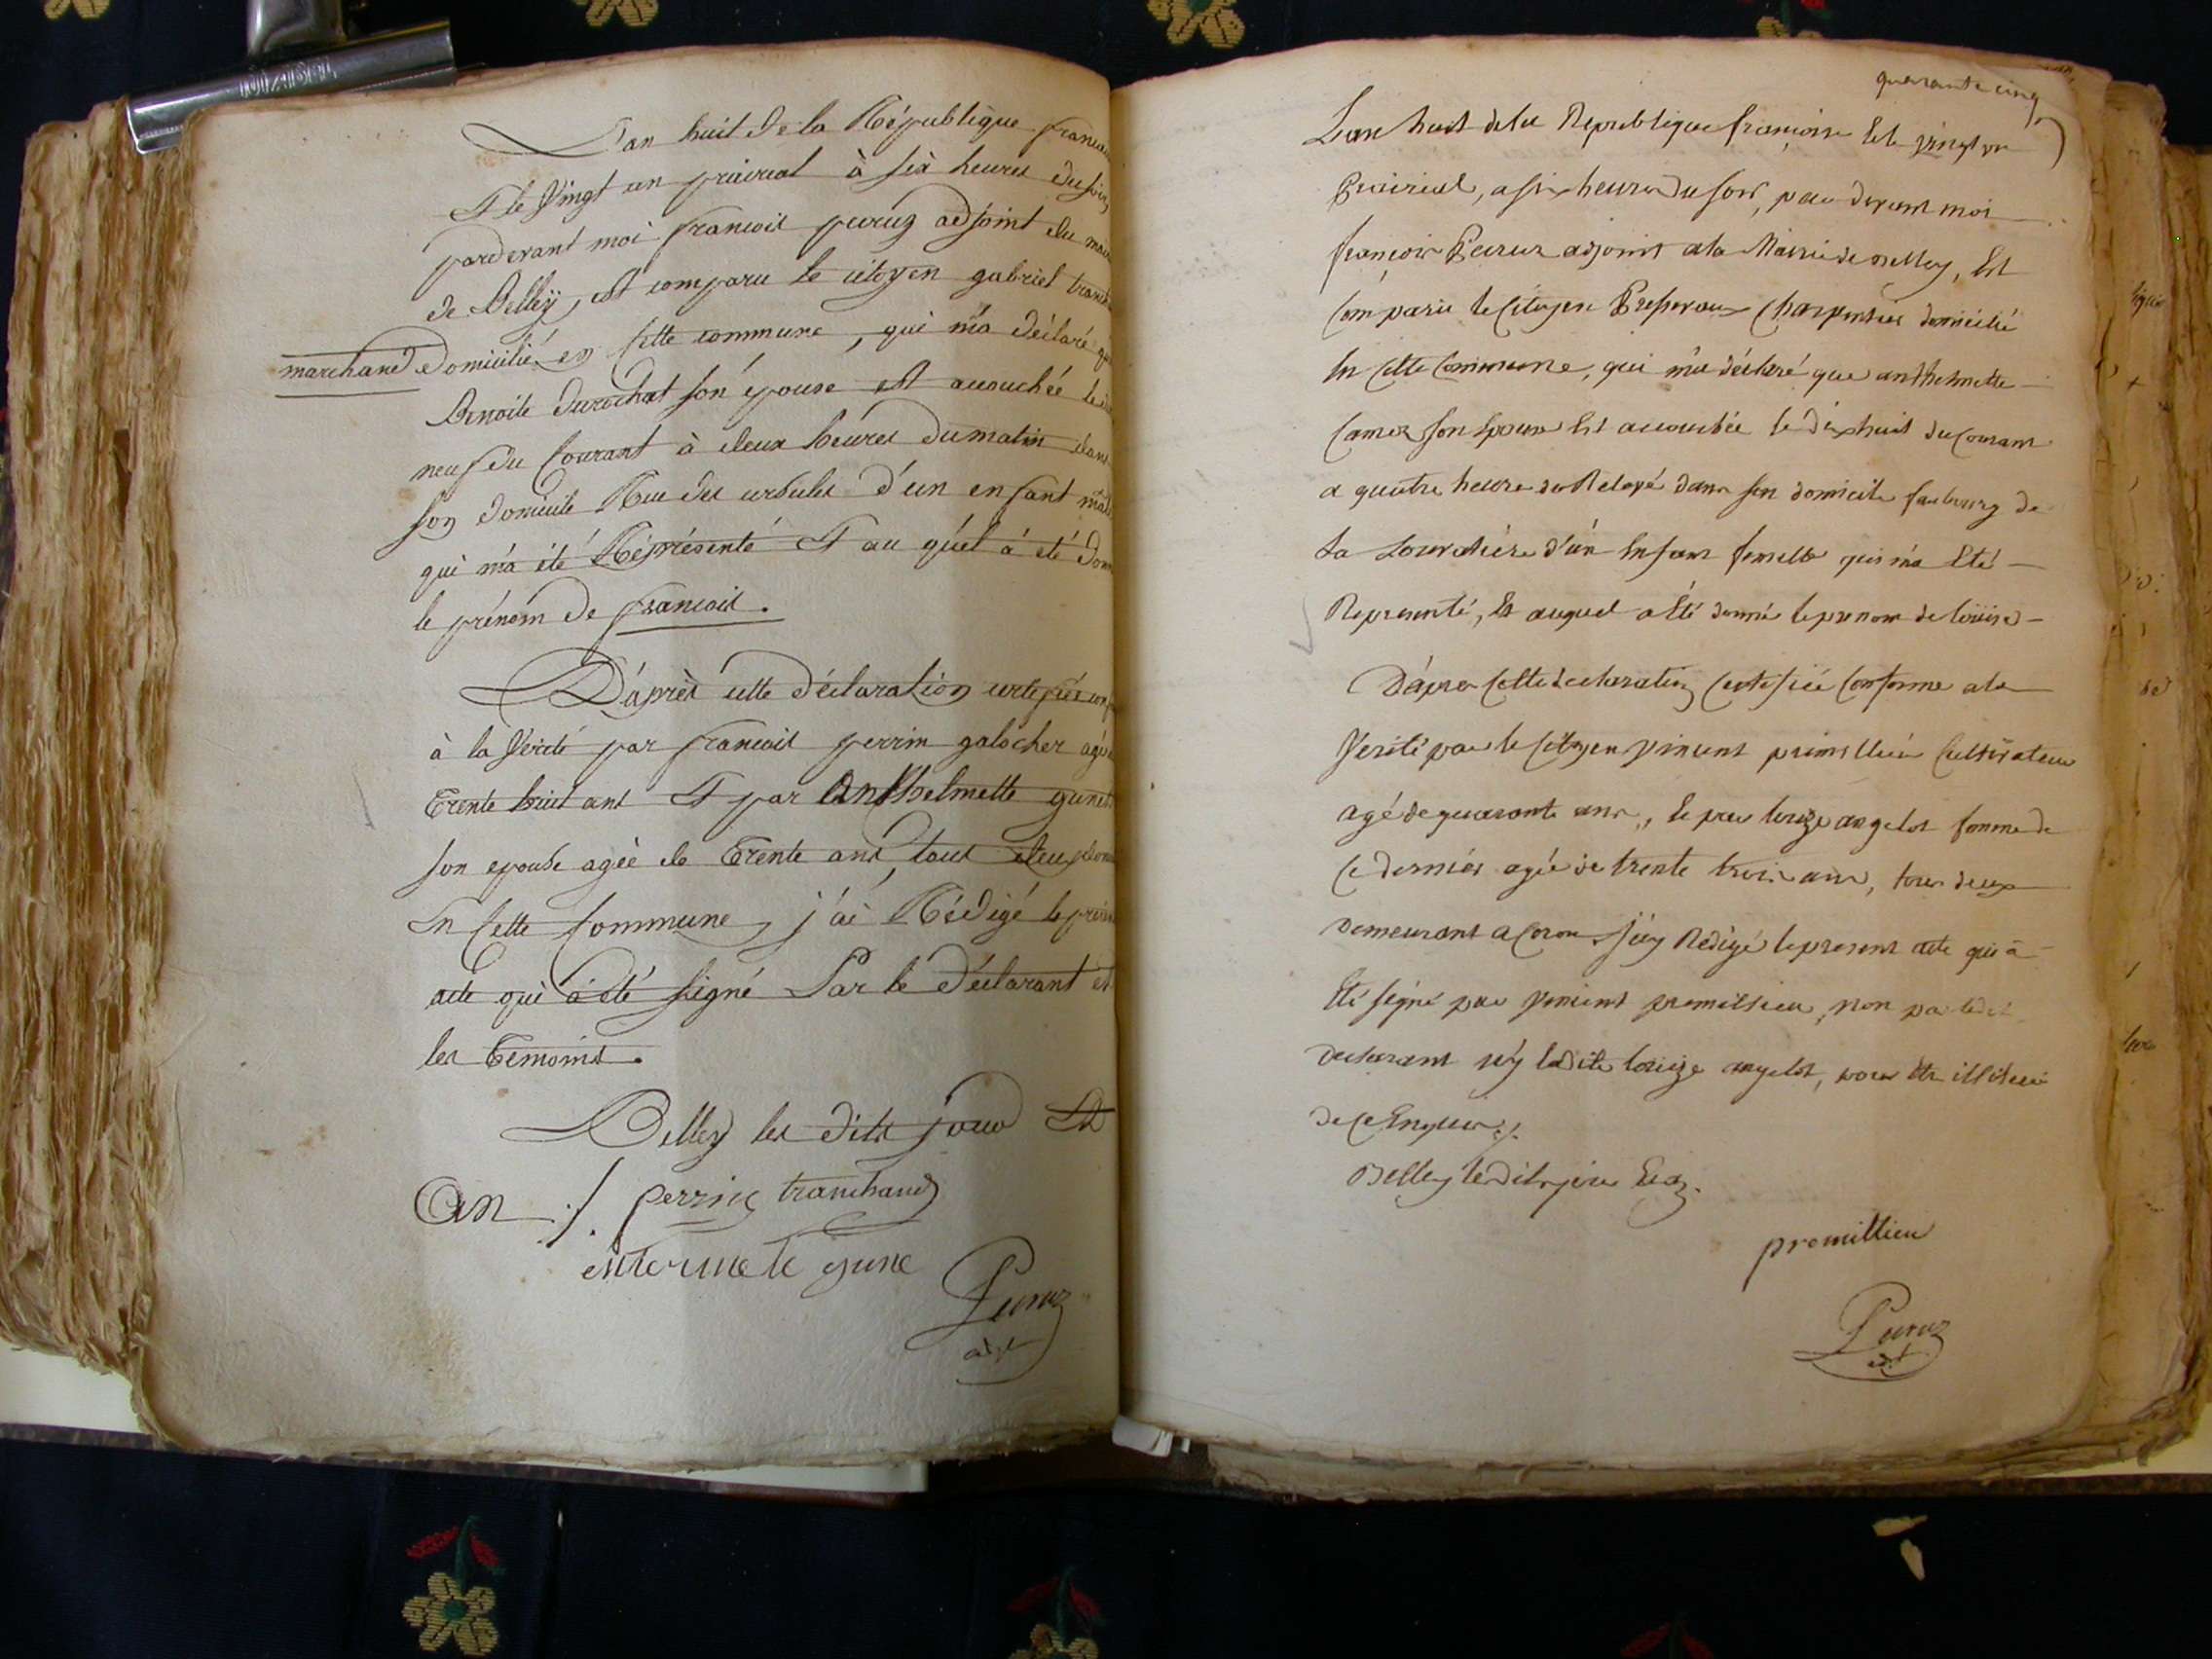 L'an huit de la République francai
Et le vingt un prairial à six heures du soir
pardevant moi francois peruz adjoint du mair
de Belley, est comparu le citoyen gabriel tranch
marchand domicilié en cette commune, qui m'a déclaré que
Benoite durochat son épouse est acouchée le dix
neuf du courant à deux heures du matin dans
son domicile Rue des ursules d'un enfant mal
qui m'a été Représenté Et au quel a été donn
le prénom de francois.
D'après cette déclaration certifiée conf
à la verité par francois perrin galocher agé
Trente huit ans Et par Anthelmette gunet
son epouse agée de Trente ans, tous deux dom
En cette commune, j'ai Rédigé le prése
acte qui a été signé Par le déclarant et
les Temoins.
Belley les dits jour Et
An ./. perrin tranchand
entermete gune
Peruz
adjt
quarante cinq
L'an huit de la Republique françoise Et le vingt un
Prairial, a six heures du soir, par devant moi
françois Peruz adjoint a la Mairie de Belley, Est
Comparu le Citoyen Charpentier domicilié
En Cette Commune, qui m'a déclaré que anthelmette
son Epouse Est accouchée le dix huit du Courant
a quatre heures du Relevé dans son domicile faubourg de
La d'un Enfant femelle qui m'a Eté
Representé, Et auquel a Eté donné le prenom de louise
D'après Cette declaration Certifiée Conforme a la
Verité par le Citoyen vincent premillieu Cultivateur
agé de quarante ans, Et par louize angelot femme de
Ce dernier agée de trente trois ans, tous deux
Demeurant a Coron j'ay Redigé le present acte qui a
Eté signé par vincent premillieu, non par ledit
declarant n'y ladite louize angelot, pour être illiteré
de Ce Enquis ./.
Belley le dit jour Et an.
premillieu
Peruz
adjt